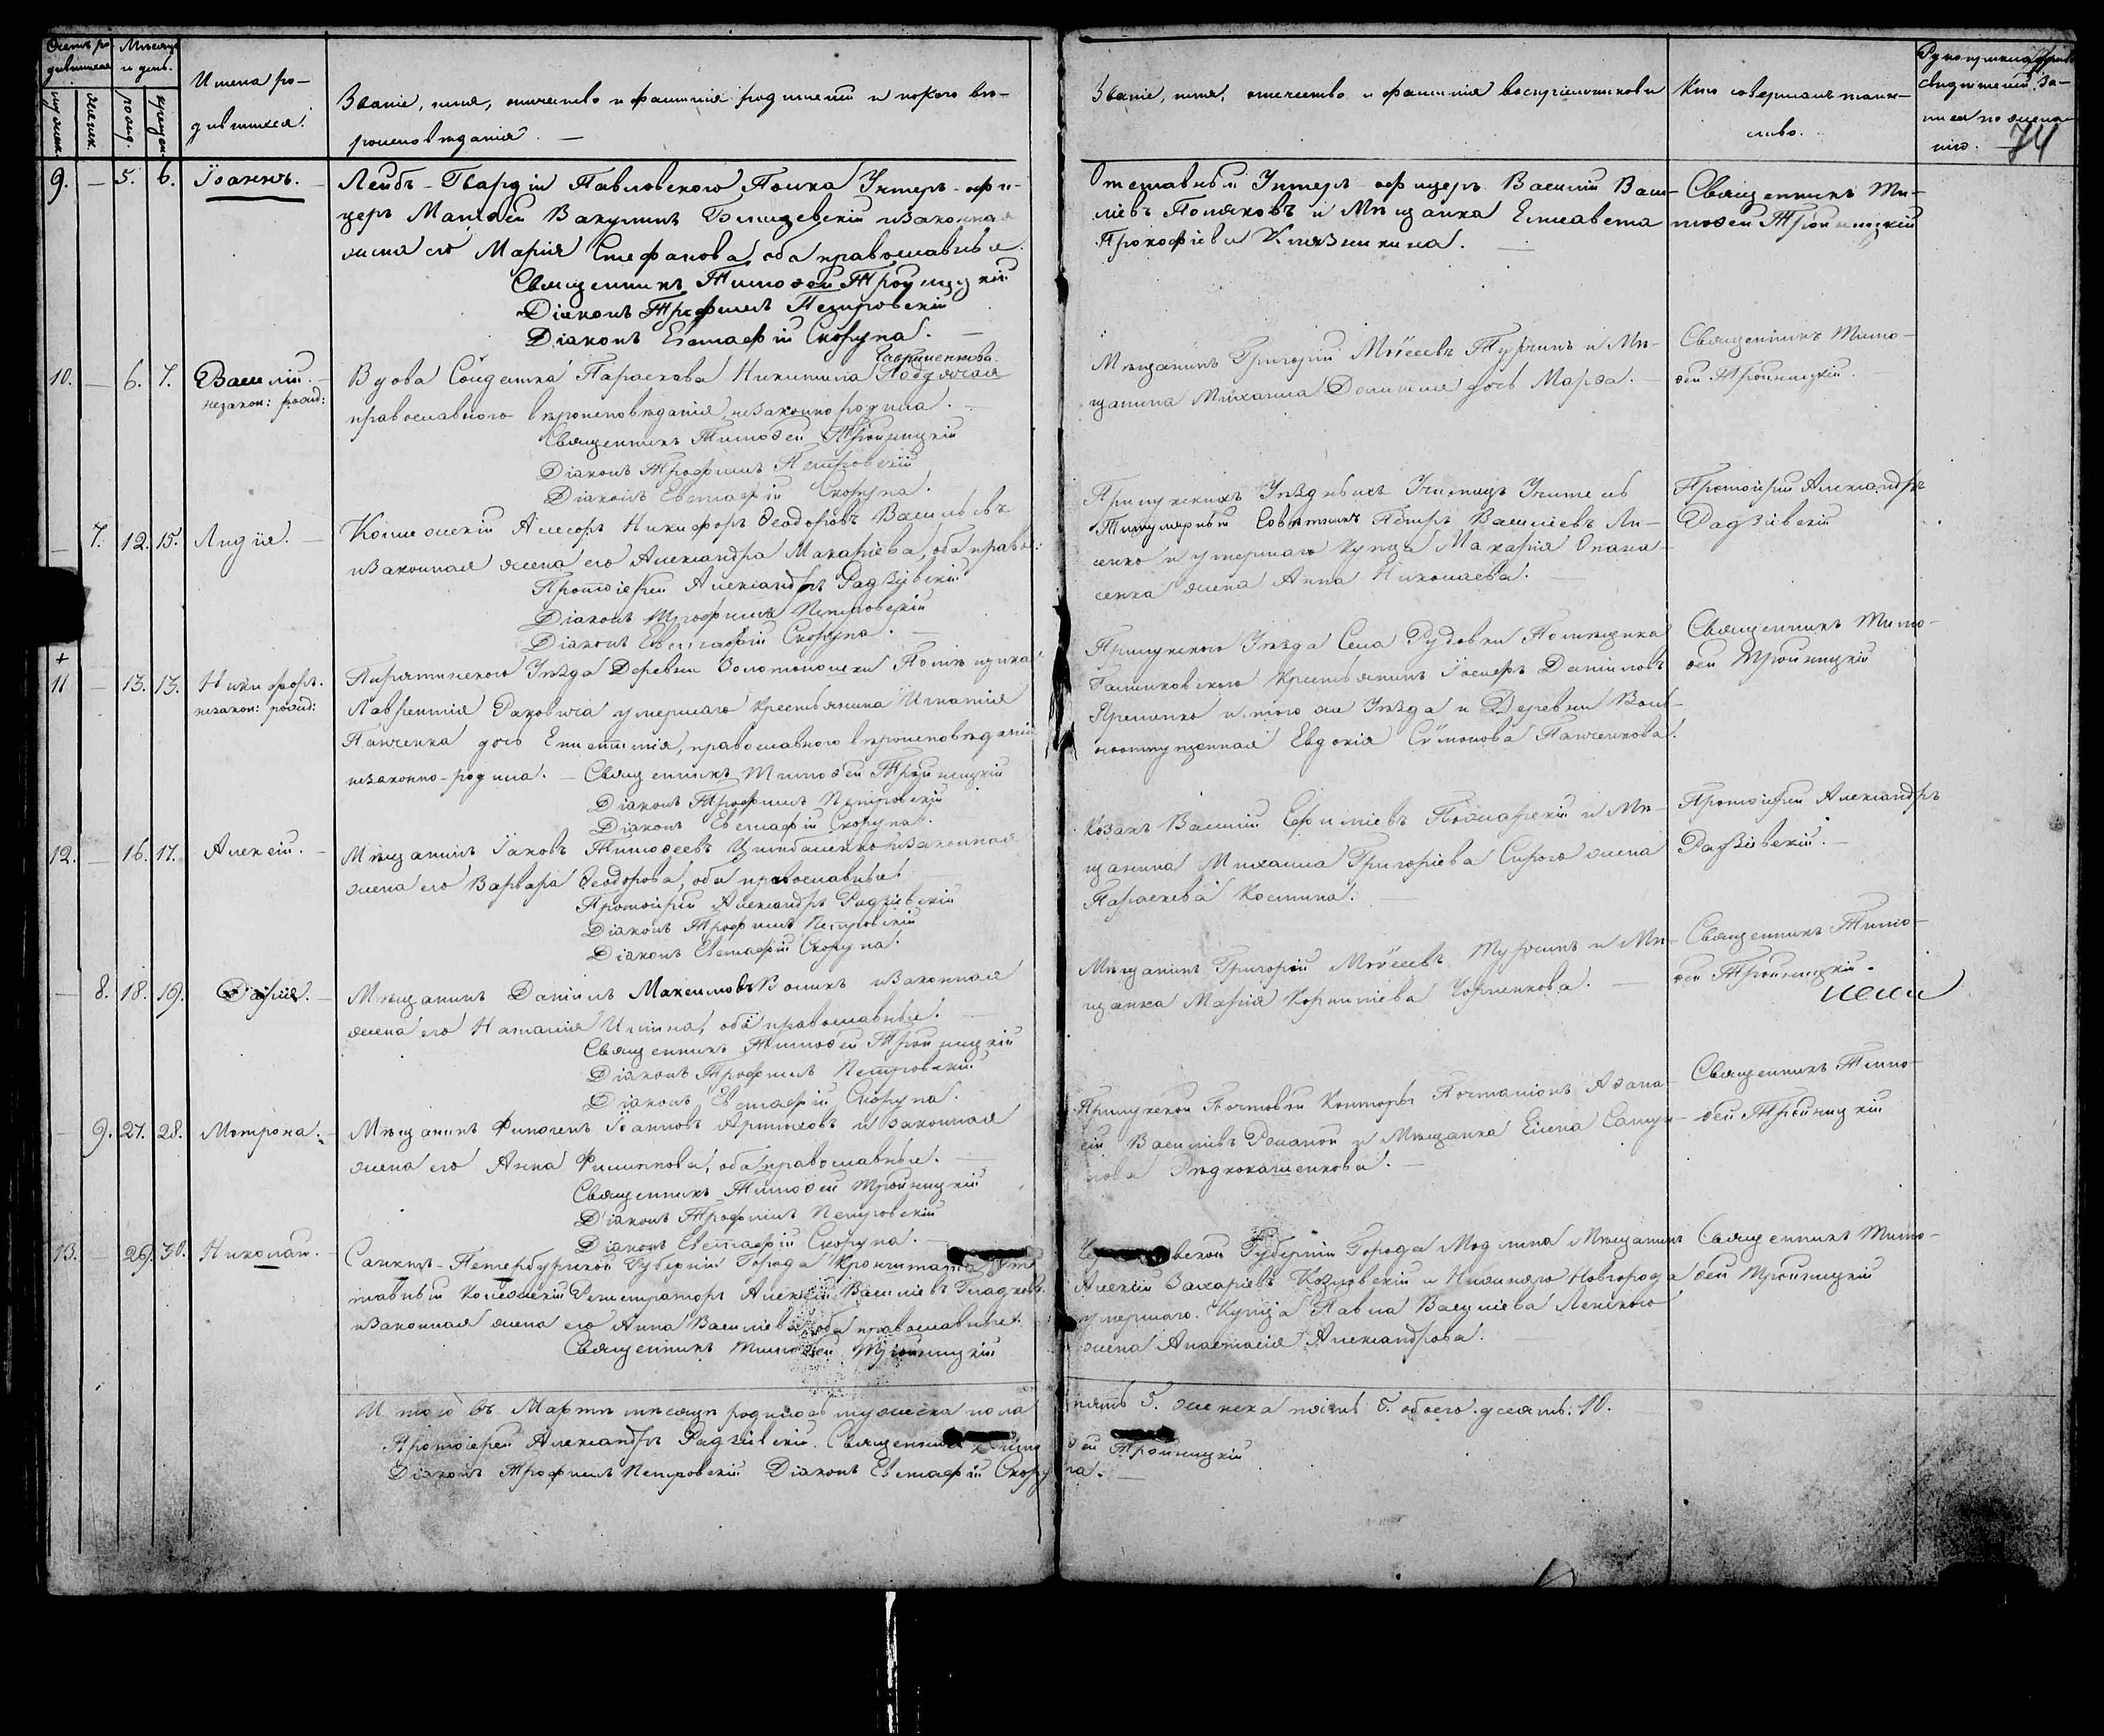 Счетъ ро-
дившихся
Мѣсяцъ
и день.
Имена ро-
дившихся.
мужеск.
женск.
рожд.
крещен.
Званіе, имя, отчество и фамилія родителей и какого вѣ-
роисповѣданія. —
Званіе, имя, отчество и фамилія воспріемниковъ
Кто совершалъ таин-
ство.
свидѣтелей за-
писи по жела-
нію.
74
9. — 5. 6. Іоаннъ. —
Лейбъ-Гвардіи Павловскаго Полка Унтеръ-офи-
церъ Матѳей Вакулинъ и законная
жена его Марія Стефанова оба православные.
Священникъ Тимоѳей Тройницкій
Діаконъ Трофимъ Петровскій
Діаконъ Евстафій Скорупа. —
Отставный Унтеръ-офицеръ Василій Васи-
ліевъ Поляковъ и Мѣщанка Елисавета
Прокофіева Княжникина. —
Священникъ Ти-
моѳей Тройницкій
10. — 6. 7. Василій. —
незакон: рожд:
Гавриленкова
Вдова Солдатка Параскева Никитина
православнаго вѣроисповѣданія, незаконно родила. —
Священникъ Тимоѳей Тройницкій
Діаконъ Трофимъ Петровскій
Діаконъ Евстафій Скорупа.
Мѣщанинъ Григорій Моисеевъ Туржинъ и Мѣ-
щанина Михаила дочь Марѳа. —
Священникъ Тимо-
ѳей Тройницкій. —
— 7. 12. 15. Лидія. —
Коллежскій Асесоръ Никифоръ Ѳеодоровъ Васильевъ
и законная жена его Александра Макаріева, оба правос:
Протоіерей Александръ Радзіевскій
Діаконъ Трофимъ Петровскій
Діаконъ Евстафій Скорупа. —
Прилукскихъ Уѣздныхъ Училищъ Учитель
Титулярный Совѣтникъ Петръ Василіевъ Ли-
сенко и умершаго купца Макарія Опана-
сенка жена Анна Николаева.
Протоіерей Александръ
Радзіевскій
+
11 — 13. 13. Никифоръ.
незакон: рожд:
Пирятинскаго Уѣзда Деревни Золотоношки Помѣщика
Лаврентія Раковича умершаго крестьянина Игнатія
Панченка дочь Епистимія, православнаго вѣроисповѣданія
незаконно-родила. — Священникъ Тимоѳей Тройницкій
Діаконъ Трофимъ Петровскій
Діаконъ Евстафій Скорупа.
Прилукскаго Уѣзда Села Рудовки Помѣщика
крестьянинъ Іосифъ Даниловъ
Яременко и того же Уѣзда и Деревни Воль-
ноотпущенная Евдокія Сѵмонова Панченкова.
Священникъ Тимо-
ѳей Тройницкій
12. — 16. 17. Алексій. —
Мѣщанинъ Іаковъ Тимоѳеевъ Цимбаленко и законная
жена его Варвара Ѳеодорова, оба православные.
Протоіерей Александръ Радзіевскій
Діаконъ Трофимъ Петровскій
Діаконъ Евстафій Скорупа.
Козакъ Василій Ефиміевъ и Мѣ-
щанина Михаила Григоріева Сираго жена
Параскева Костина. —
Протоіерей Александръ
Радзіевскій. —
— 8. 18. 19. Дарія. —
Мѣщанинъ Даніилъ Максимовъ Воликъ и законная
жена его Наталія Ильина, оба православные. —
Священникъ Тимоѳей Тройницкій
Діаконъ Трофимъ Петровскій
Діаконъ Евстафій Скорупа.
Мѣщанинъ Григорій Моисеевъ Туржинъ и Мѣ-
щанка Марія Корниліева Чорненкова. —
Священникъ Тимо-
ѳей Тройницкій.
— 9. 27. 28. Матрона. —
Мѣщанинъ Филогенъ Іоанновъ Артюховъ и законная
жена его Анна Филиппова, оба православные. —
Священникъ Тимоѳей Тройницкій
Діаконъ Трофимъ Петровскій
Діаконъ Евстафій Скорупа. —
Прилукской Почтовой Конторы Почталіонъ Аѳана-
сій Василіевъ и Мѣщанка Елена Самуи-
лова Рѣдкокашенкова. —
Священникъ Тимо-
ѳей Тройницкій
13. — 29. 30. Николай. —
Санктъ-Петербургской Губерніи Города Кронштата От-
ставный Коллежскій Регистраторъ Алексій Василіевъ Гладковъ
и законная жена его Анна Василіева оба православные.
Священникъ Тимоѳей Тройницкій
Губерніи Города Мѣщанинъ
Алексій Захаріевъ Козловскій и Нижняго Новгорода
умершаго Купца Павла Василіева Ленскаго
жена Анастасія Александрова.
Священникъ Тимо-
ѳей Тройницкій
И того въ Мартѣ мѣсяцѣ родилось мужеска пола пять 5. женска пять 5. обоего десять. 10.
Протоіерей Александръ Радзіевскій. Священникъ Тимоѳей Тройницкій
Діаконъ Трофимъ Петровскій Діаконъ Евстафій Скорупа. —